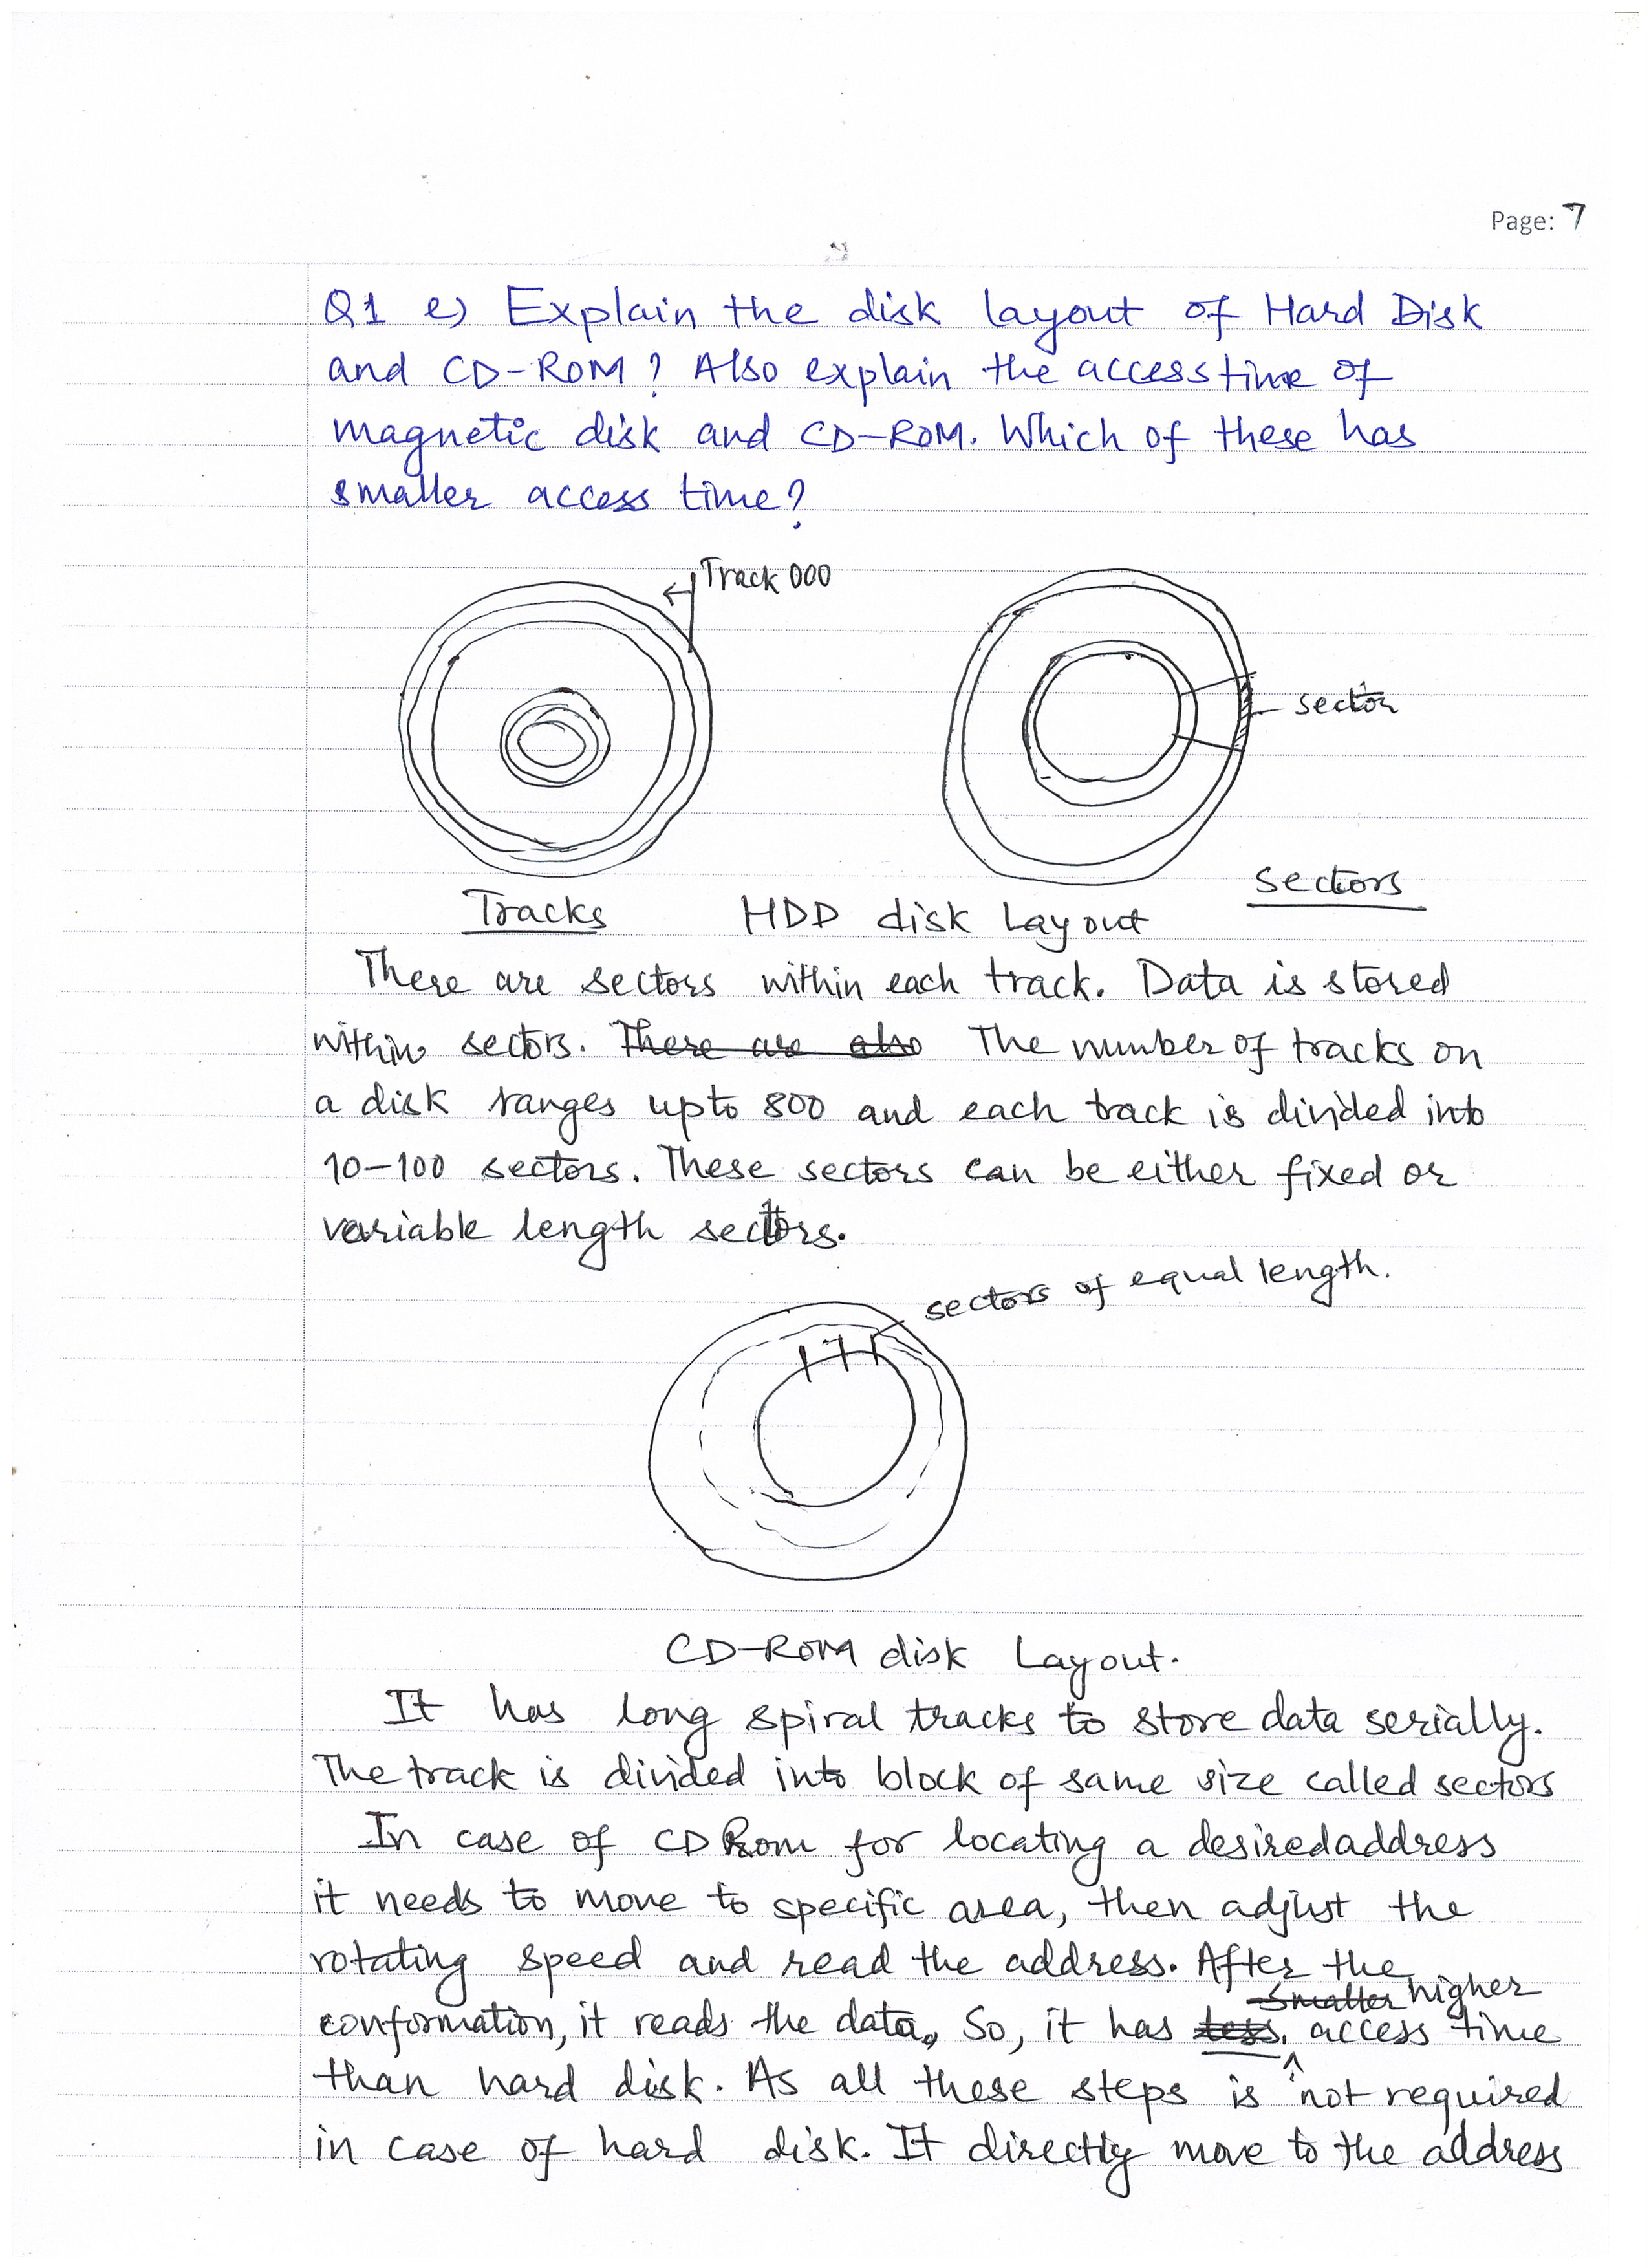 Page: 7
Q1 e) Explain the disk layout of Hard Disk
and CD-ROM? Also explain the access time of
magnetic disk and CD-ROM. Which of these has
smaller access time?
Track 000
sector
Sectors
Tracks HDD disk Layout
There are sectors within each track. Data is stored
within sectors. There are also The number of tracks on
a disk ranges upto 800 and each track is divided into
10-100 sectors. These sectors can be either fixed or
variable length sectors.
sectors of equal length.
CD-ROM disk Layout.
It has long spiral tracks to store data serially.
The track is divided into block of same size called sectors
In case of CD Rom for locating a desired address
it needs to move to specific area, then adjust the
rotating speed and read the address. After the
smaller higher
conformation, it reads the data. So, it has less. access time
than hard disk. As all these steps is not required
in case of hard disk. It directly move to the address